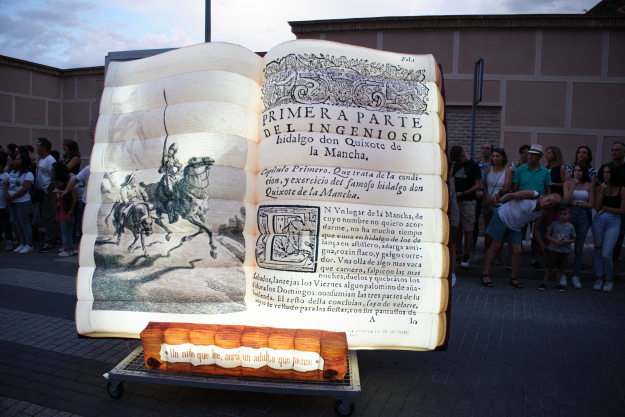 Fol.1
PRIMERA PARTE
DEL INGENIOSO
hidalgo don Quixote de
la Mancha,
Capitulo Primero. Que trata de la condi-
cion, y exercicio del famoso hidalgo don
Quixote de la Mancha.
EN Vn lugar de la Mancha, de
cuyo nombre no quiero acor-
darme, no ha mucho tiempo
que viuia vn hidalgo de los de
lança en astillero, adarga anti-
gua, rozin flaco, y galgo corre-
dor. Vna olla de algo mas vaca
que carnero, salpicon las mas
noches, duelos y quebrãtos los
Sabados, lantejas los Viernes, algun palomino de aña-
didura los Domingos: consumian las tres partes de su
hazienda. El resto della concluian, sayo de velarte,
calças de velludo para las fiestas, con sus pantuflos de
A lo
Un niño que lee, será un adulto que piense